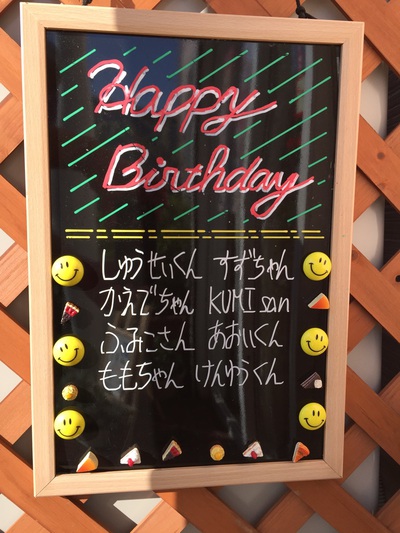 Happy
Birthday
しゅうせいくん すずちゃん
かえでちゃん KUMI san
ふみこさん あおいくん
ももちゃん けんゆうくん